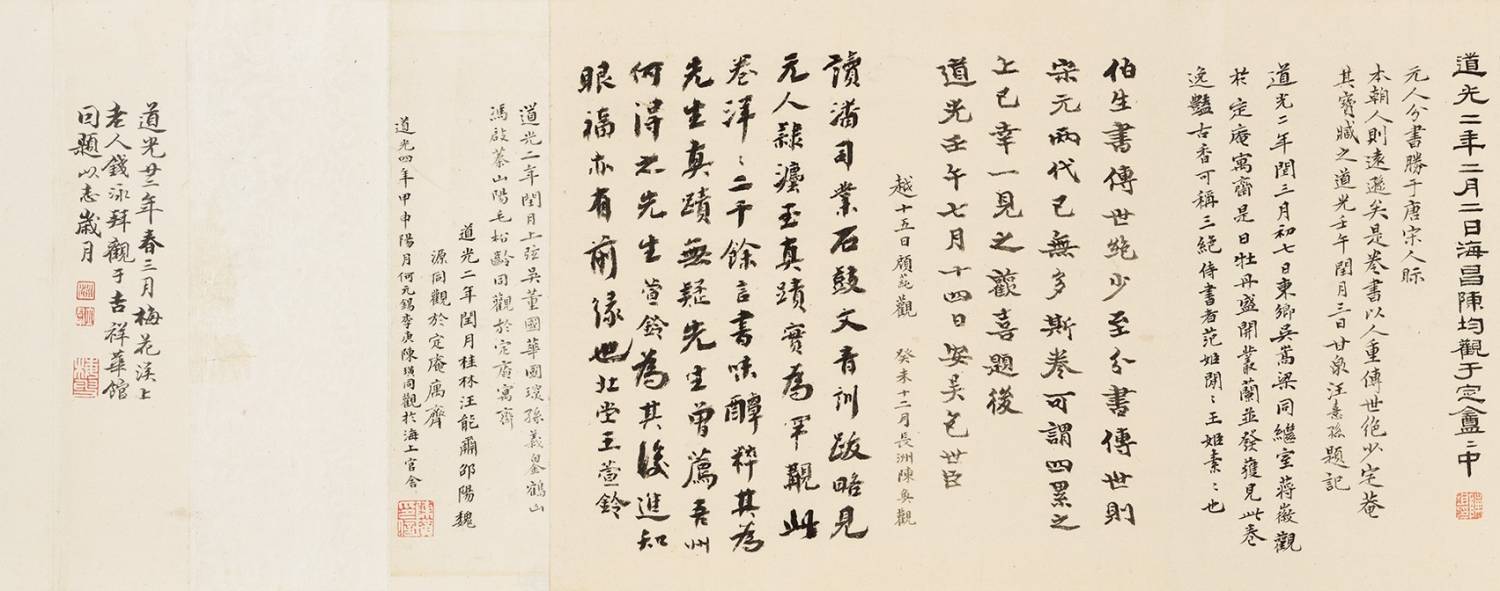 道光二年二月二日海昌陳均觀于定盦盦中
元人分書勝于唐宋人眎
本朝人則遠遜矣是卷書以人重傳世絕少定菴
其寶臧之道光壬午閏月三日甘泉汪憙孫題記
道光二年閏三月初七日東鄉吳蒿梁同繼室蔣徽觀
於定庵寓齋是日牡丹盛開叢蘭並發獲見此卷
逸豔古香可稱三絕侍書者范姬閒〻王姬素〻也
伯生書傳世絕少至分書傳世則
宋元兩代已無多斯卷可謂四累之
上已幸一見之歡喜題後
道光壬午七月十四日安吳包世臣
越十五日顧蒓觀
癸未十二月長洲陳奐觀
讀潘司業石鼓文音訓跋略見
元人隸瀍玉真蹟實為罕覯此
卷洋〻二千餘言書味醇粹其為
先生真蹟無疑先生曾薦吾州
何得之先生萱鈴為其後進知
眼福亦有前緣也北堂王萱鈴
道光二年閏月上弦吳董國華國琛孫義鋆鶴山
馮啟蓁山陽毛松齡同觀於定庵寓齋
道光二年閏月桂林汪能肅邵陽魏
源同觀於定庵寓齋
道光四年甲申陽月何元錫李庚陳璜同觀於海上官舍
道光廿二年春三月梅花溪上
老人錢泳拜觀于吉祥華館
因題以志歲月